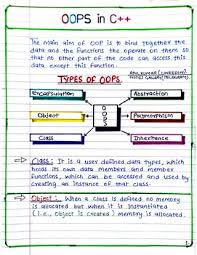 OOPS in C++
The main aim of OOP is to bind together the
data and the functions the operate on them so
that no other part of the code can access this
data except this function.
TYPES OF OOPS
Encapsulation
Abstraction
Object
Polymorphism
Class
Inheritance
Class : It is a user defined data types, which
holds its own data members and member
functions, which can be accessed and used by
creating an instance of that class.
Object : When a class is defined no memory
is allocated but when it is instantiated
(i.e., Object is created) memory is allocated.